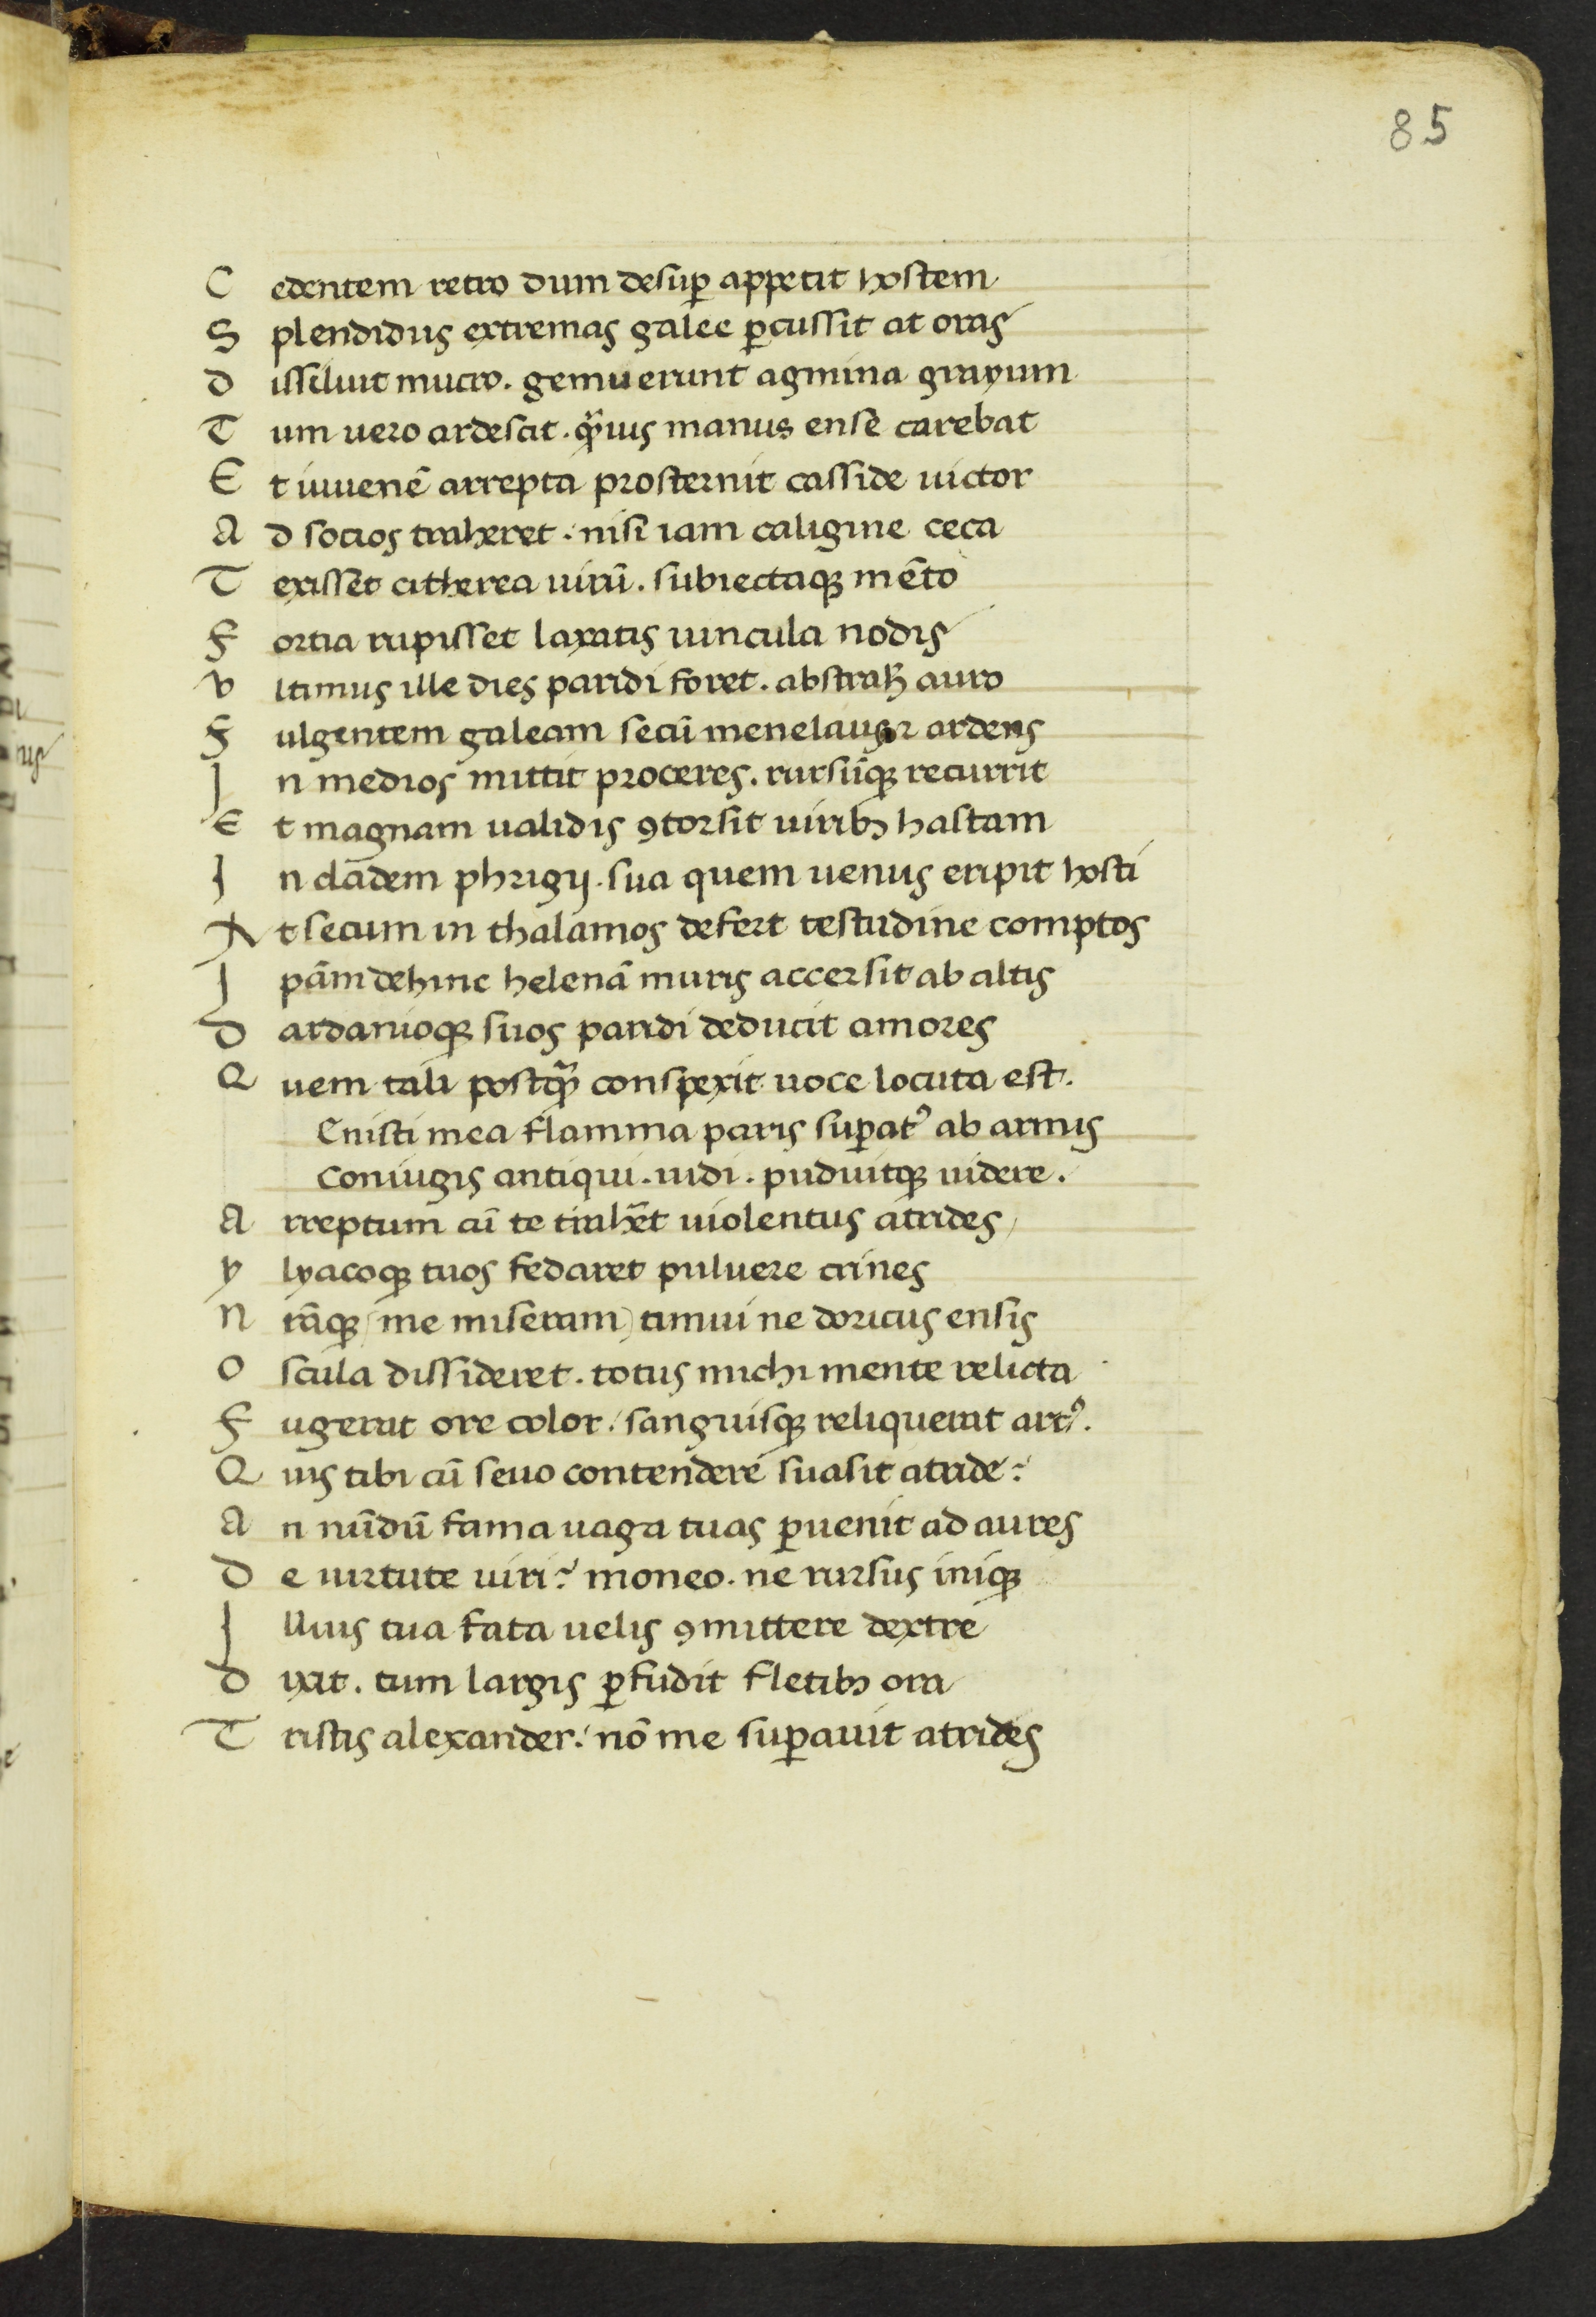 85
C edentem retro dum desuꝑ appetit hostem
S plendidus extremas galee ꝑcussit at oras
D issiluit mucro. gemuerunt agmina grayum
T um uero ardescit. qͣ̃uis manus ense carebat
E t iuuenẽ arrepta prosternit casside uictor
A d socios traheret. nisi iam caligine ceca
T exisset citherea uirũ. subiectaqꝫ mẽto
F ortia rupisset laxatis uincula nodis
V ltimus ille dies paridi foret. abstrahꝫ auro
F ulgentem galeam secũ menelaus ⁊ ardens
I n medios mittit proceres. rursũqꝫ recurrit
E t magnam ualidis ꝯtorsit uiribꝫ hastam
I n cladem phrigij. sua quem uenus eripit hosti
A t secum in thalamos defert testudine comptos
I pãm dehinc helenã muris accersit ab altis
D ardanioqꝫ suos paridi deducit amores
Q uem tali postqͣ̃ conspexit uoce locuta est.
Enisti mea flamma paris suꝑatꝰ ab armis
Coniugis antiqui. uidi. puduitqꝫ uidere.
A rreptum cũ te trahẽt uiolentus atrides
Y lyacoqꝫ tuos fedaret puluere crines
N rãqꝫ (me miseram) timui ne doricus ensis
O scula dissideret. totus michi mente relicta
F ugerat ore color. sanguisqꝫ reliquerat artꝰ.
Q uis tibi cũ seuo contendere suasit atride?
A n nũdũ fama uaga tuas ꝑuenit ad aures
D e uirtute uiri? moneo. ne rursus iniqꝫ
I llius tua fata uelis ꝯmittere dextre
D ixit. tum largis ꝑfudit fletibꝫ ora
T ristis alexander. nõ me suꝑauit atrides